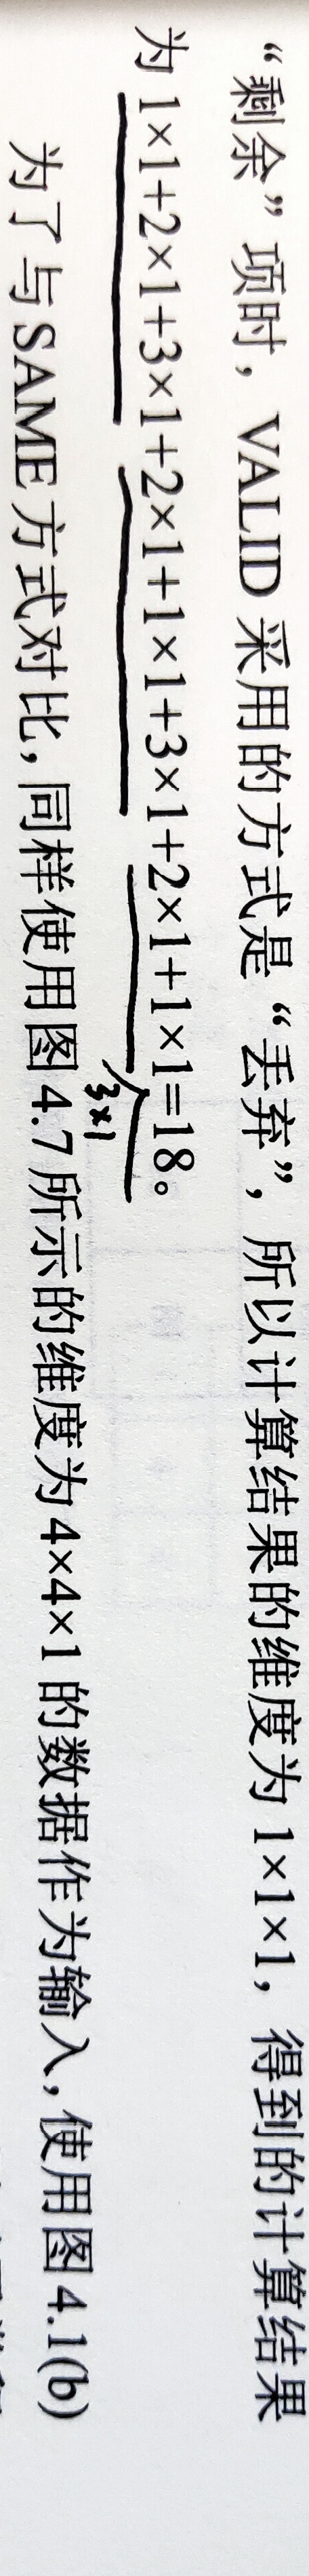 “剩余”项时，VALID 采用的方式是“丢弃”，所以计算结果的维度为 1×1×1，得到的计算结果
为 1×1+2×1+3×1+2×1+1×1+3×1+2×1+1×1=18。
3×1
为了与 SAME 方式对比，同样使用图 4.7 所示的维度为 4×4×1 的数据作为输入，使用图 4.1(b)